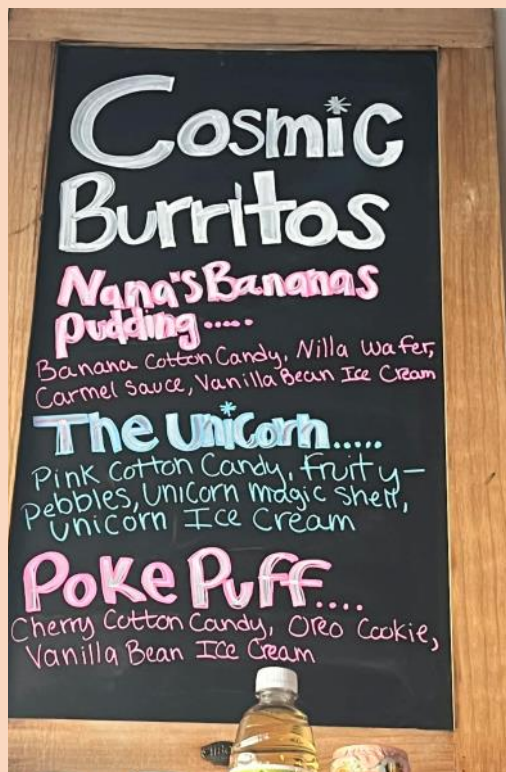 Cosmic
Burritos
Nana's Bananas
Pudding.....
Banana Cotton Candy, Nilla Wafer,
Carmel Sauce, Vanilla Bean Ice Cream
The Unicorn.....
Pink Cotton Candy, Fruity-
Pebbles, Unicorn magic shell,
Unicorn Ice Cream
Poke Puff....
Cherry Cotton Candy, Oreo Cookie,
Vanilla Bean Ice Cream